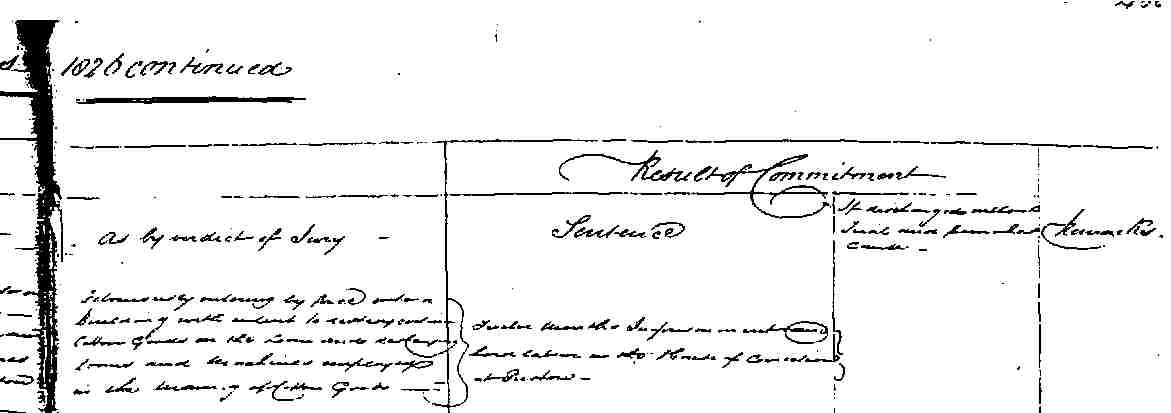 1826 continued
Result of Commitment
As by verdict of Jury -
Sentence
If discharged without
Trial and from what
Cause -
Remarks.
Feloniously entering by Force into a
Building with intent to destroy certain
Cotton Goods in the Loom and destroying
Looms and Machines employed
in the weaving of Cotton Goods
Twelve Months Imprisonment and
hard labor in the House of Correction
at Preston -